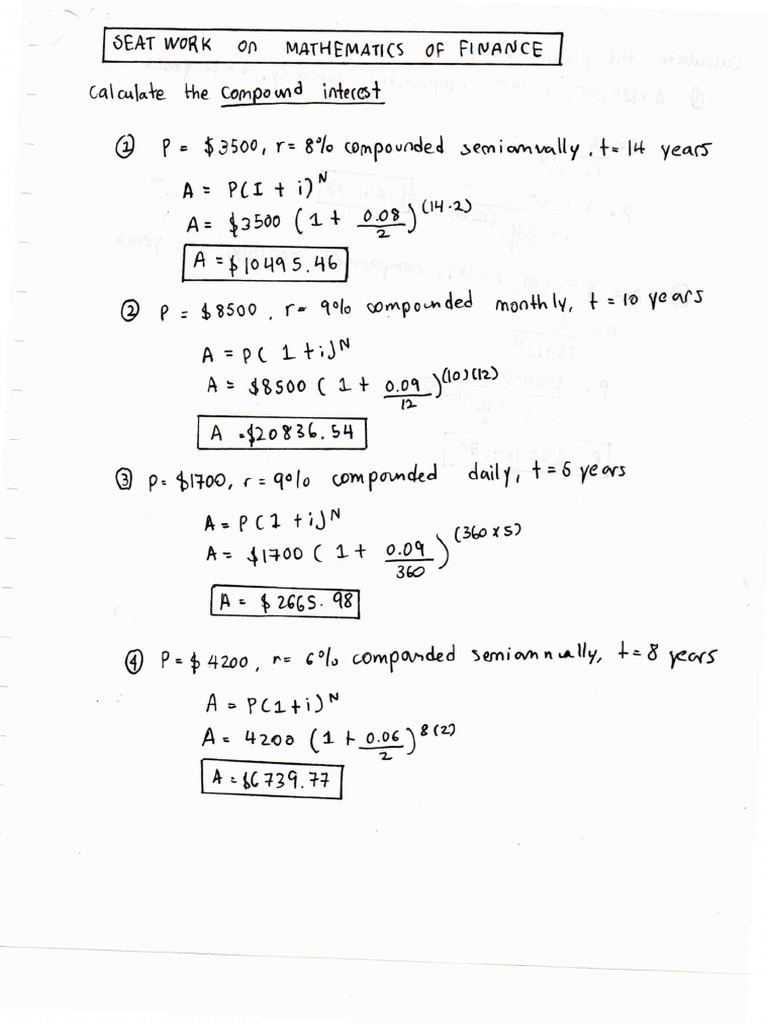 SEAT WORK on MATHEMATICS OF FINANCE
Calculate the compound interest
① P = $3500, r = 8% compounded semiannually, t = 14 years
A = P(I + i)^N
A = $3500 (1 + 0.08/2)^(14·2)
A = $10495.46
② P = $8500, r = 9% compounded monthly, t = 10 years
A = P(1 + i)^N
A = $8500 (1 + 0.09/12)^(10)(12)
A = $20836.54
③ P = $1700, r = 9% compounded daily, t = 5 years
A = P(1 + i)^N
A = $1700 (1 + 0.09/360)^(360 x 5)
A = $2665.98
④ P = $4200, r = 6% compounded semiannually, t = 8 years
A = P(1+i)^N
A = 4200 (1 + 0.06/2)^8(2)
A = $6739.77